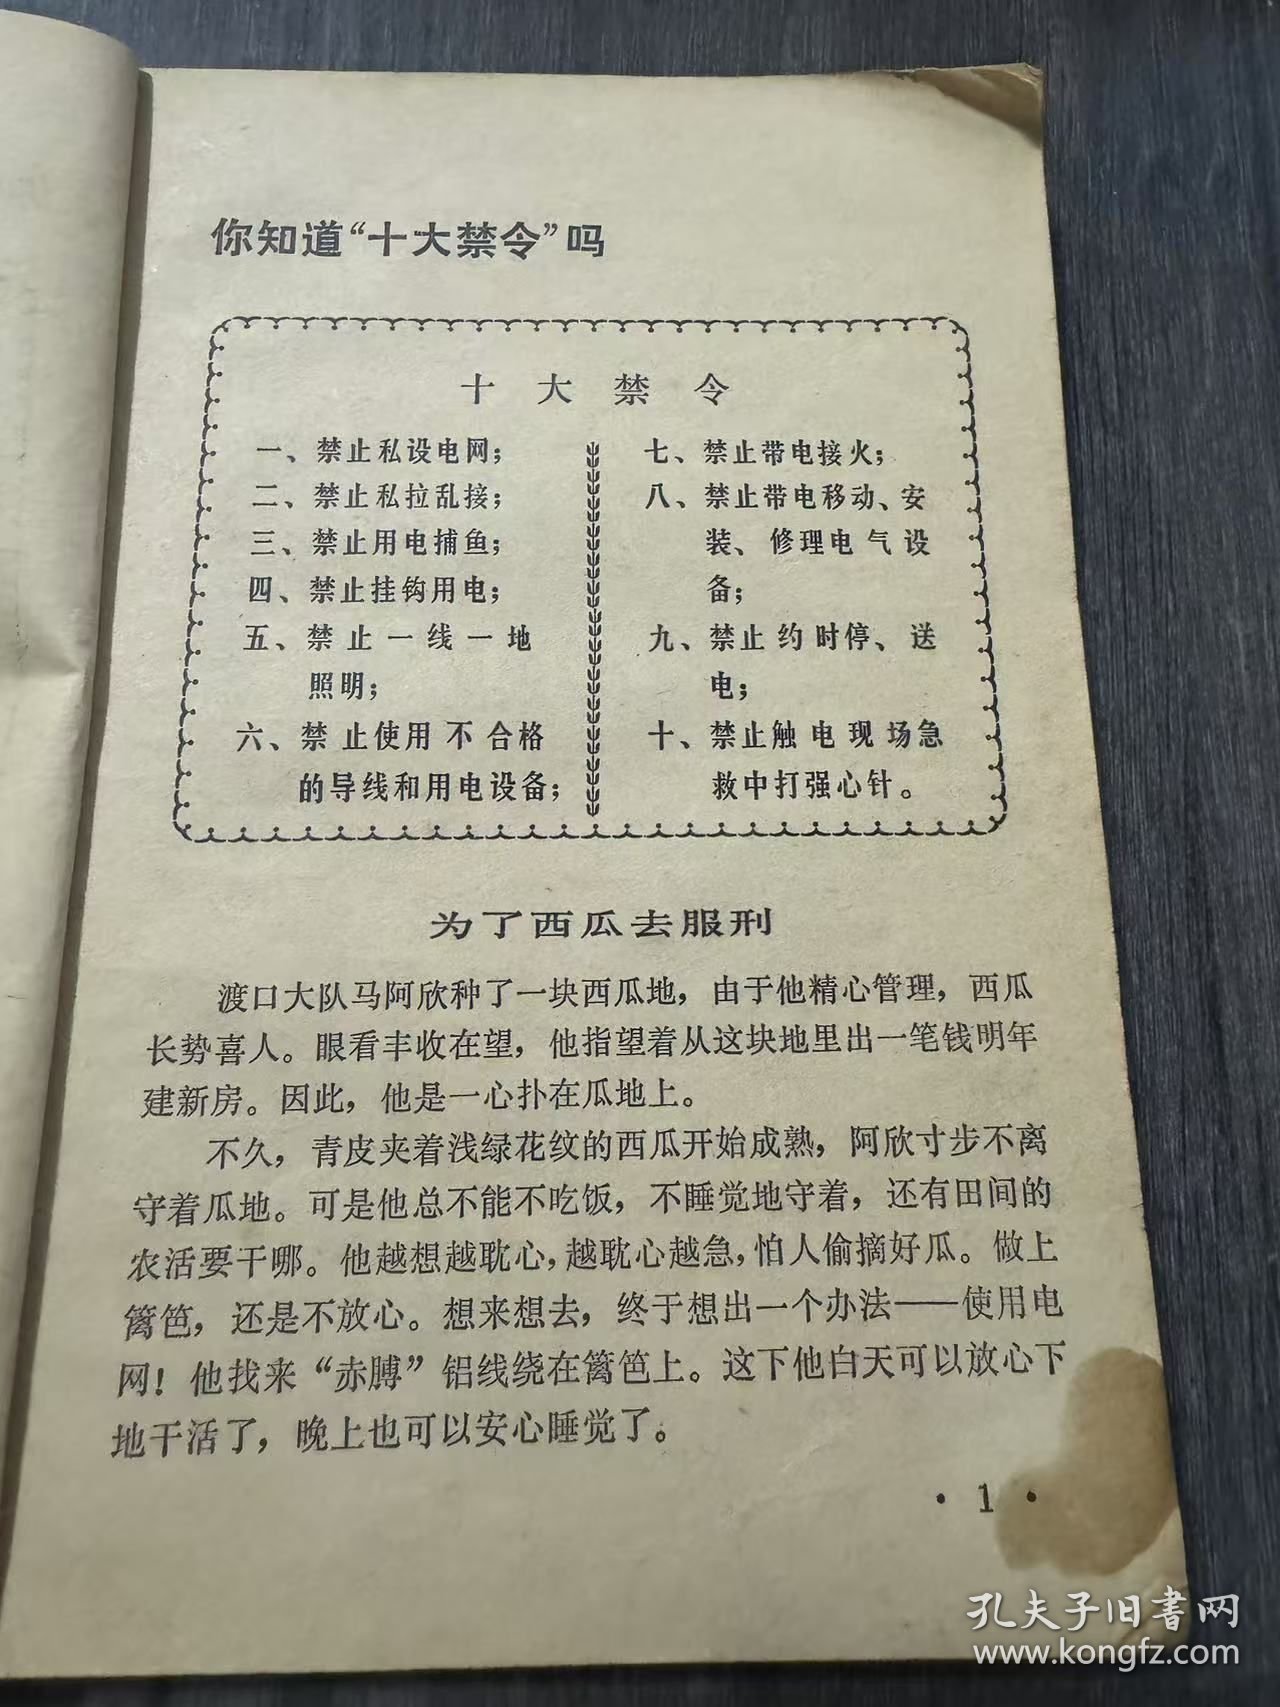 你知道“十大禁令”吗
十大禁令
一、禁止私设电网；
二、禁止私拉乱接；
三、禁止用电捕鱼；
四、禁止挂钩用电；
五、禁止一线一地
照明；
六、禁止使用不合格
的导线和用电设备；
七、禁止带电接火；
八、禁止带电移动、安
装、修理电气设
备；
九、禁止约时停、送
电；
十、禁止触电现场急
救中打强心针。
为了西瓜去服刑
渡口大队马阿欣种了一块西瓜地，由于他精心管理，西瓜
长势喜人。眼看丰收在望，他指望着从这块地里出一笔钱明年
建新房。因此，他是一心扑在瓜地上。
不久，青皮夹着浅绿花纹的西瓜开始成熟，阿欣寸步不离
守着瓜地。可是他总不能不吃饭，不睡觉地守着，还有田间的
农活要干哪。他越想越耽心，越耽心越急，怕人偷摘好瓜。做上
篱笆，还是不放心。想来想去，终于想出一个办法——使用电
网！他找来“赤膊”铝线绕在篱笆上。这下他白天可以放心下
地干活了，晚上也可以安心睡觉了。
·1·
孔夫子旧書网
www.kongfz.com